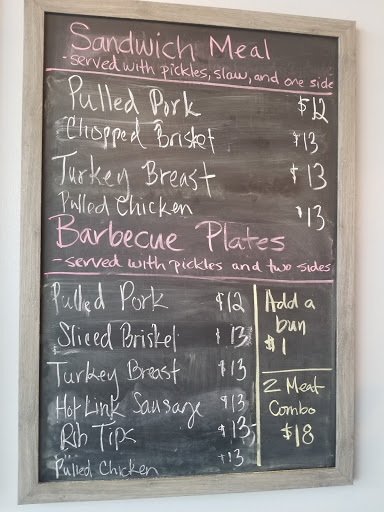 Sandwich Meal
-served with pickles, slaw, and one side
Pulled Pork $12
Chopped Brisket $13
Turkey Breast $13
Pulled Chicken $13
Barbecue Plates
-served with pickles and two sides
Pulled Pork $12
Sliced Brisket $13
Turkey Breast $13
Hot Link Sausage $13
Rib Tips $13
Pulled Chicken $13
Add a
bun
$1
2 Meat
Combo
$18